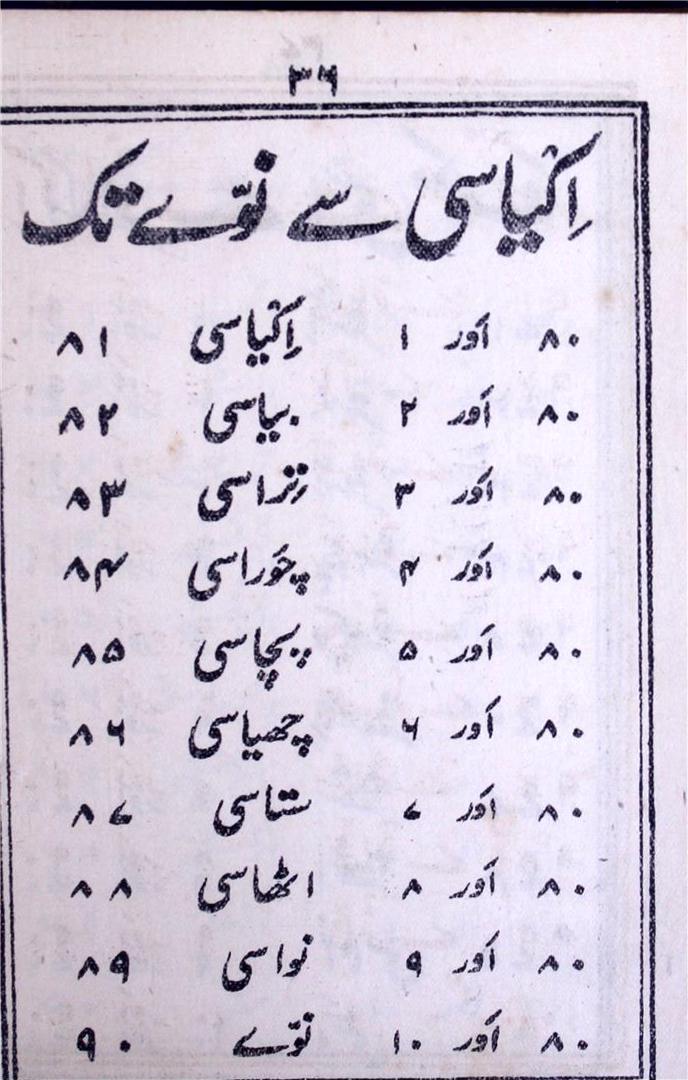 ۳۶
اِکیاسی سے نوّے تک
۸۰ اَور ۱ اِکیاسی ۸۱
۸۰ اَور ۲ بیاسی ۸۲
۸۰ اَور ۳ تِراسی ۸۳
۸۰ اَور ۴ چَوراسی ۸۴
۸۰ اَور ۵ پچاسی ۸۵
۸۰ اَور ۶ چھیاسی ۸۶
۸۰ اَور ۷ ستاسی ۸۷
۸۰ اَور ۸ اٹھاسی ۸۸
۸۰ اَور ۹ نواسی ۸۹
۸۰ اَور ۱۰ نوّے ۹۰